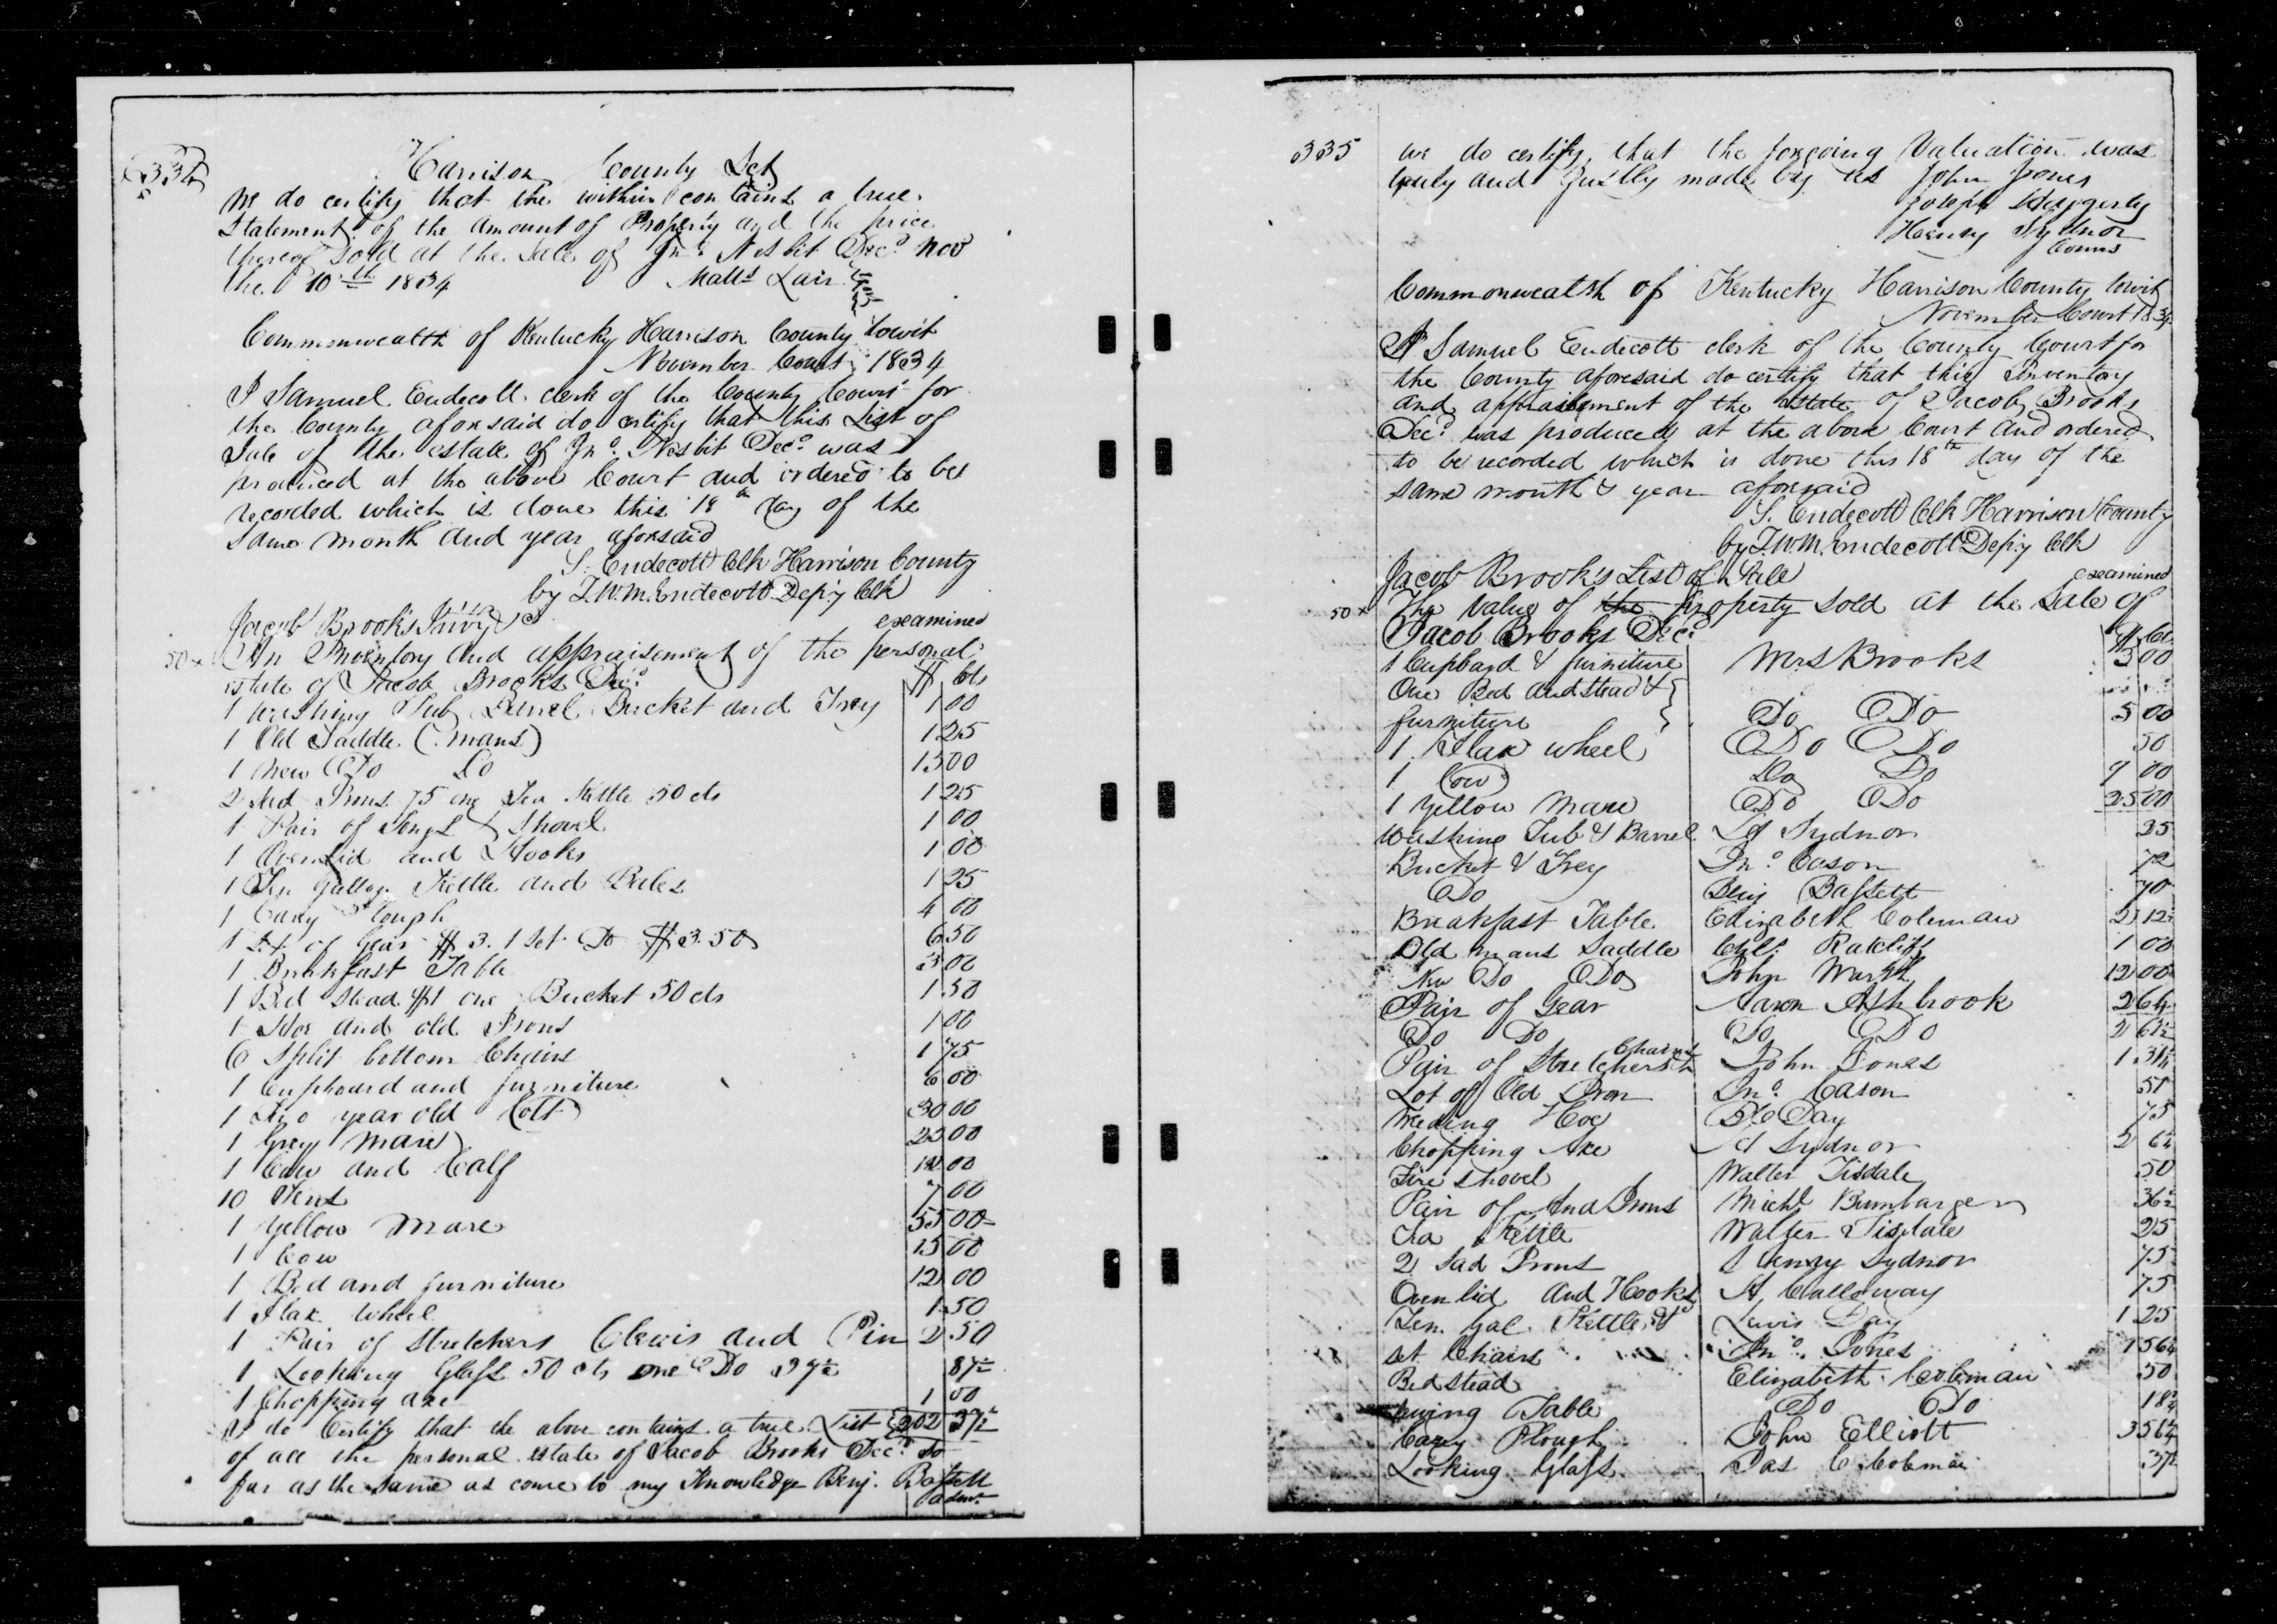 334
Harrison County Sct
We do certify that the within contains a true
Statement of the amount of Property and the price
thereof sold at the Sale of Jno. Nesbit Decd. Nov
the 10th 1834 Matts Lair
Commonwealth of Kentucky Harrison County towit
November Court 1834
I Samuel Endecott clerk of the County Court for
the County aforesaid do certify that this List of
Sale of the estate of Jno. Nesbit Decd. was
produced at the above Court and ordered to be
recorded which is done this 18th day of the
same month and year aforesaid
S. Endecott Clk Harrison County
by T.W.M. Endecott Depy Clk
Jacob Brook's Invy examined
50 x An Inventory and appraisement of the personal
estate of Jacob Brooks Decd. $ Cts
1 Washing Tub Barrel Bucket and Trey 1 00
1 Old Saddle (mans) 1 25
1 New Do Do 15 00
2 Sad Irons 75 one Tea Kettle 50 cts 1 25
1 Pair of Tongs & Shovel 1 00
1 Oven Lid and Hooks 1 00
1 Ten gallon Kettle and Bales 1 25
1 Cary Plough 4 00
1 Set of Gear $3. 1 Set Do $3.50 6 50
1 Breakfast Table 3 00
1 Bed Stead $1 one Bucket 50 cts 1 50
1 Hoe and old Irons 1 00
6 Split bottom Chairs 1 75
1 Cupboard and furniture 6 00
1 two year old Colt 30 00
1 Grey Mare 25 00
1 Cow and Calf 00
10 7 00
1 Yellow Mare 55 00
1 Cow 15 00
1 Bed and furniture 12 00
1 Flax Wheel 1 50
1 Pair of Stretchers Clevis and Pin 2 50
1 Looking Glass 50 cts one Do 37½ 87½
1 Chopping axe 1 00
I do Certify that the above contains a true List 202 37½
of all the personal estate of Jacob Brooks Decd. so
far as the same as come to my Knowledge Benj. Bassett
adm.
335 We do certify that the foregoing Valuation was
truly and Justly made by us John Jones
Joseph
Henry Sydnor
Comrs
Commonwealth of Kentucky Harrison County towit
November Court 1834
I Samuel Endecott clerk of the County Court for
the County aforesaid do certify that this Inventory
and appraisement of the Estate of Jacob Brooks
Decd. was produced at the above Court and ordered
to be recorded which is done this 18th day of the
same month & year aforesaid
S. Endecott Clk Harrison County
by T.W.M. Endecott Depy Clk
Jacob Brook's List of Sale examined
50 x The Value of the property sold at the Sale of
Jacob Brooks Decd. $ Cts
1 Cupbard & furniture Mrs Brooks 3 00
One Bed and stead &
furniture Do Do 5 00
1 Flax wheel Do Do 50
1 Cow Do Do 9 00
1 Yellow Mare Do Do 25 00
Washing Tub & Barrel H Sydnor 25
Bucket & Trey Jno. Cason
Do Benj Bassett
Breakfast Table Elizabeth Coleman 2 12½
Old mans Saddle Chs. Ratcliff 1 00
New Do Do John 12 00
Pair of Gear Aaron Ashbrook 2 64
Do Do Do Do 2 62½
Pair of Stretchers Chains John Jones 1 31¼
Lot of Old Iron Jno. Cason 51
Weeding Hoe Day 75
Chopping Axe H Sydnor
Fire Shovel Walter Tisdale 50
Pair of And Irons Michl Bumbarger 36½
Tea Kettle Walter Tisdale 25
2 Sad Irons Henry Sydnor 75
Oven lid and Hooks H. Calloway 75
Ten Gal Kettle Lewis Day 1 25
set Chairs Jno. Jones 1 56¼
Bed stead Elizabeth Coleman 50
Table Do Do 18¾
Cary Plough John Elliott 3 56¼
Looking Glass Jas C Coleman 37½